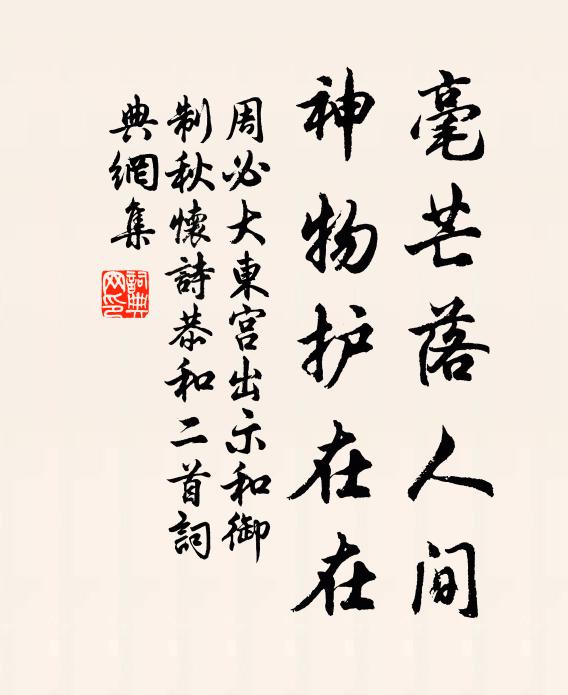 毫芒落人间
神物护在在
周必大東宫出示和御
制秋懷詩恭和二首詞
典網集
詞典
网印